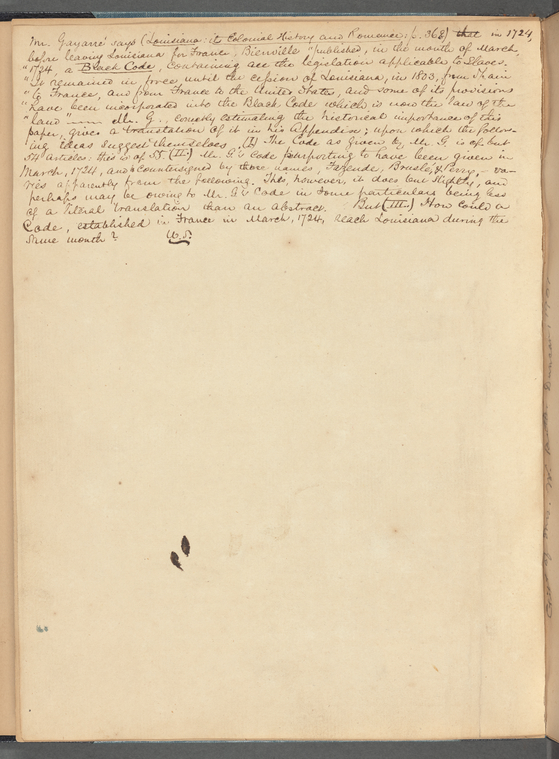 Mr. Gayarré says (Louisiana: its Colonial History and Romance: p. 362) that in 1724,
before leaving Louisiana for France, Bienville "published, in the month of March,
"1724, a Black Code, containing all the legislation applicable to slaves.
"It remained in force until the cession of Louisiana, in 1803, from Spain
"to France, and from France to the United States, and some of its provisions
"have been incorporated into the Black Code which is now the law of the
"land" —— Mr. G., correctly estimating the historical importance of this
paper, gives a translation of it in his Appendix; upon which the follow-
ing ideas suggest themselves. (I.) The Code as given by Mr. G. is of but
54 articles: this is of 55. (II.) Mr. G.'s Code purporting to have been given in
March, 1724, and countersigned by three names, Fazende, Bruslé, & Perry, — va-
ries apparently from the following. This, however, it does but slightly, and
perhaps may be owing to Mr. G.'s Code in some particulars being less
of a literal translation than an abstract. But (III.) How could a
Code, established in France in March, 1724, reach Louisiana during the
same month?